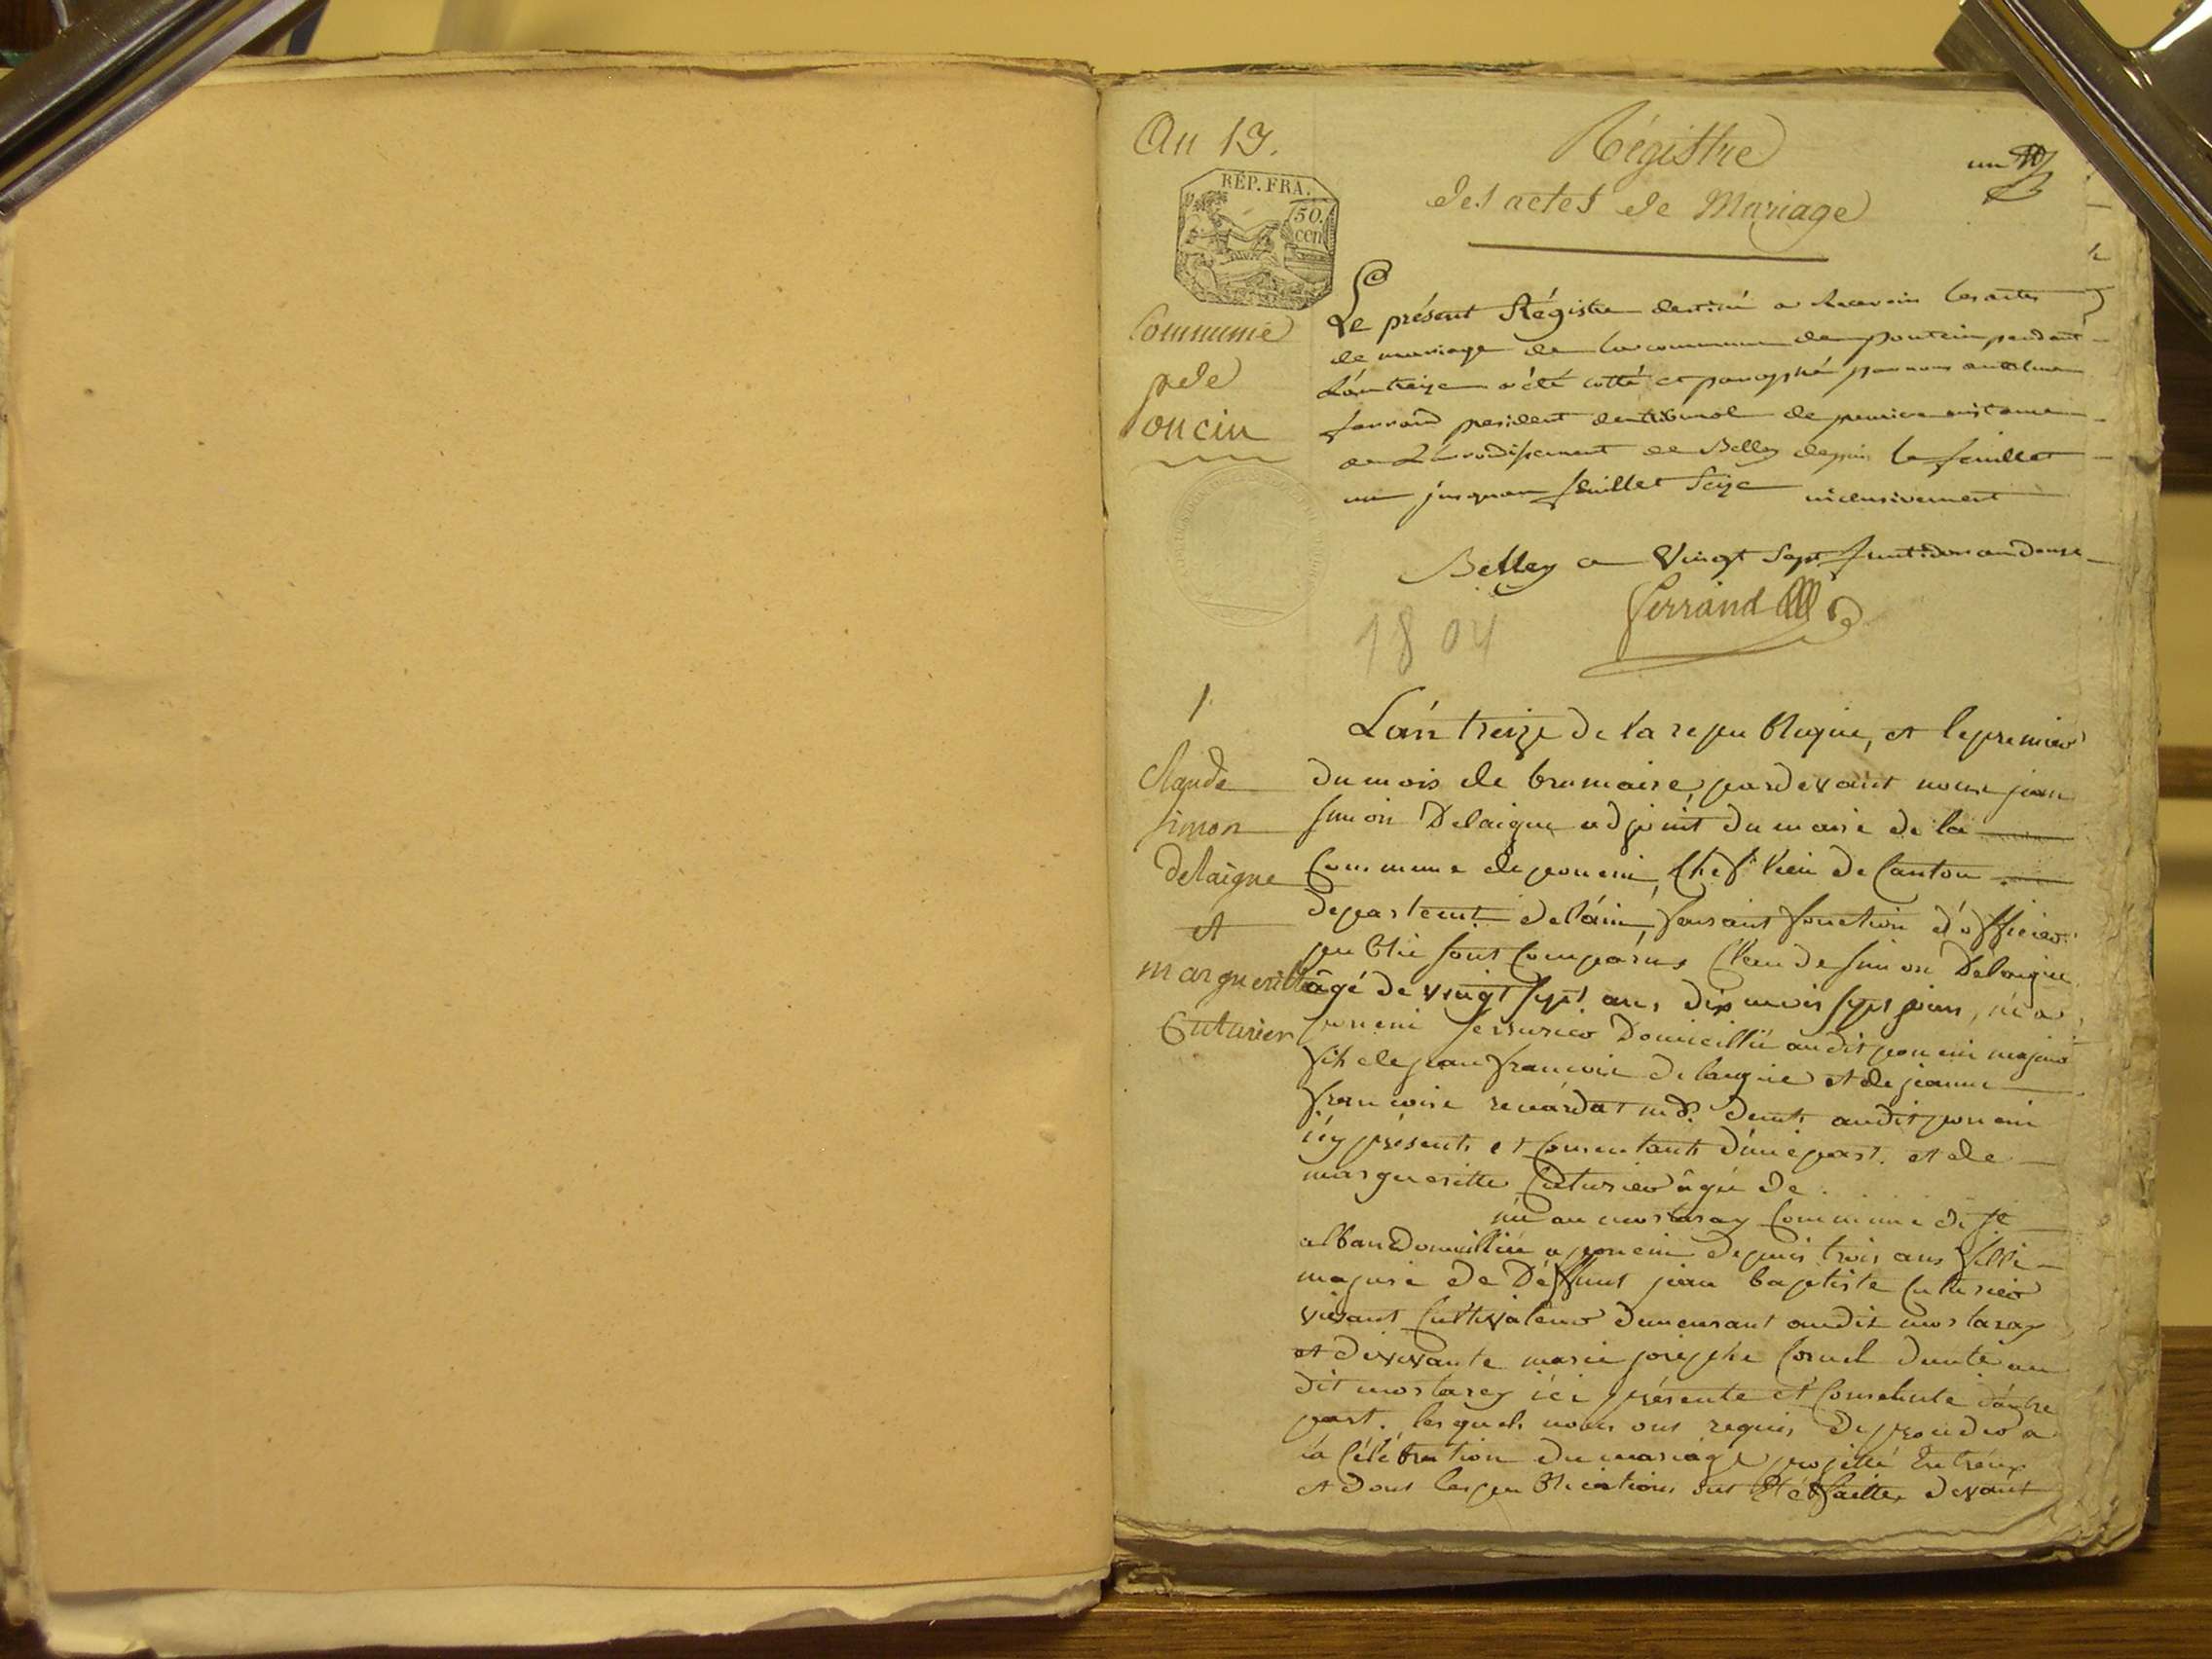 An 13.
Régistre
des actes de Mariage
un
REP. FRA.
50.
cen
Commune
de
poncin
Le présent Régistre destiné a Recevoir les actes
de mariage de la commune de poncin pendant
L'an treize a été cotté et paraphé par nous anthelme
ferrand president du tribunal de premiere instance
de L'arrondissement de Belley depuis le feuillet
un jusquau feuillet Seize inclusivement
Belley ce Vingt Sept fructidor an douze
ferrand
1804
1.
Claude
simon
delaigue
et
margueritte
Cuturier
L'an treize de la republique, et le premier
du mois de brumaire, pardevant nous jean
simon Delaigue adjoint du maire de la
Commune de poncin, Chef lieu de Canton
departemt. de l'ain, faisant fonction d'officier
public sont Comparus Claude simon Delaigue
âgé de vingt sept ans, dix mois sept jours, né a
poncin serrurier Domicillié audit poncin majeur
fils de jean francois delaigue et de jeanne
francoise renardat md. demts. audit poncin
icy présents et Consentants d'une part. et de
margueritte Cuturier âgée de
née au mortarey Commune de st
alban Domicilliée a poncin depuis trois ans fille
majure de Deffunt jean baptiste Cuturier
vivant Cultivateur demeurant audit mortarey
et de vivante marie josephe Cornel demte. au
dit mortarey ici présente et Consentente d'autre
part. lesquels nous ont requis de proceder a
la Célébration du mariage projetté Entréux
et dont les publications ont été faittes devant